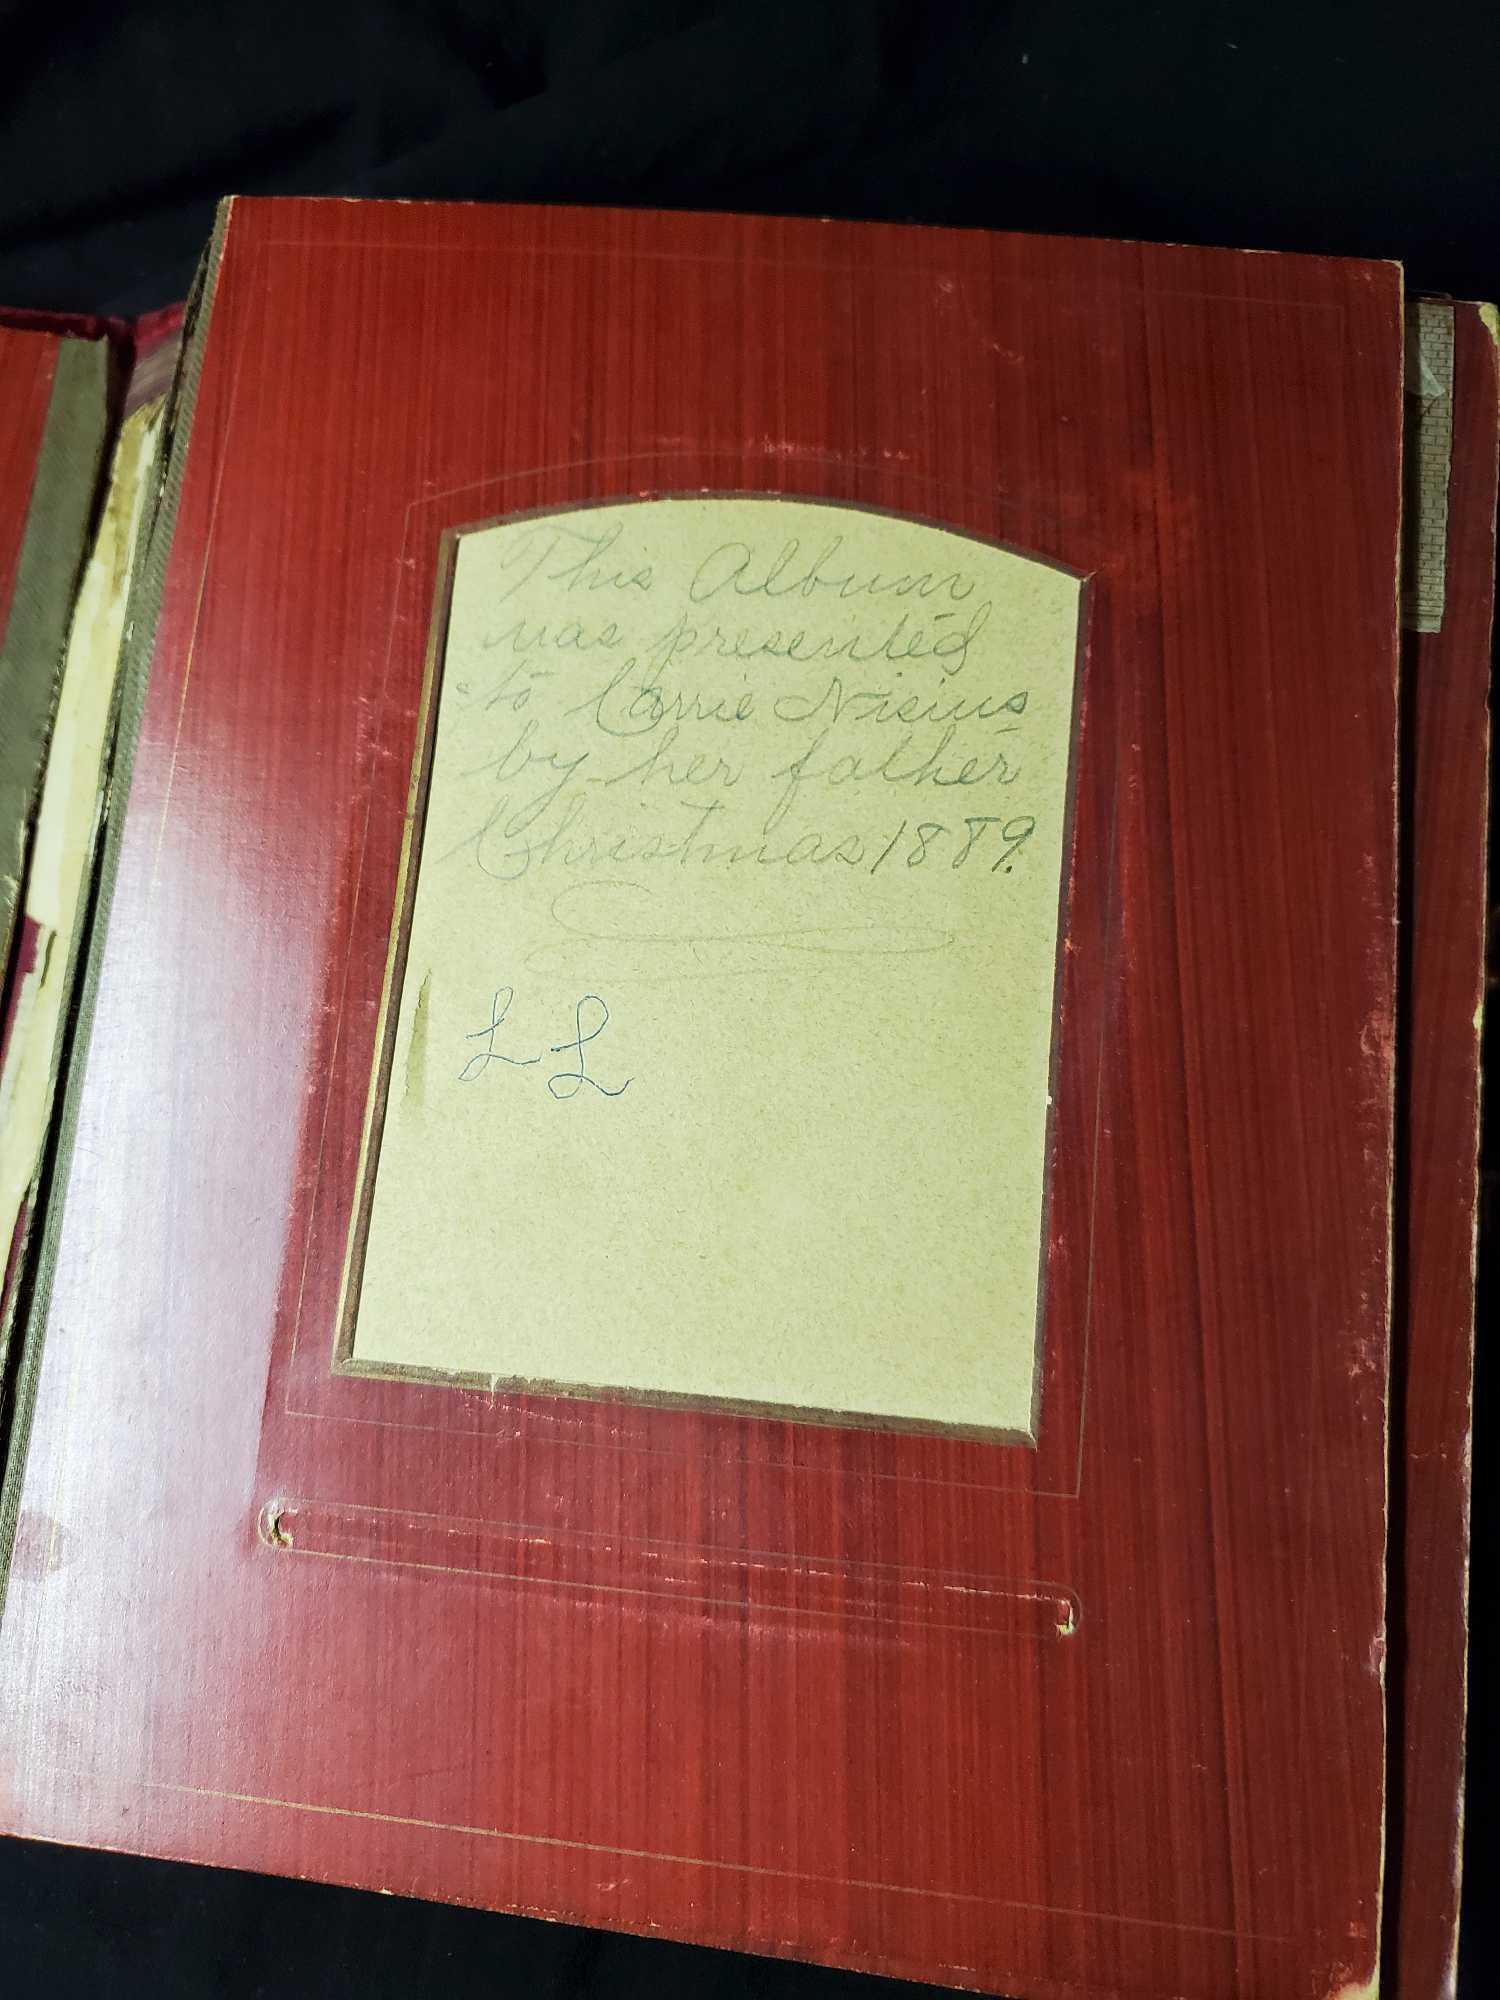 This Album
was presented
to Carrie Nisius
by her father
Christmas 1889.
L L